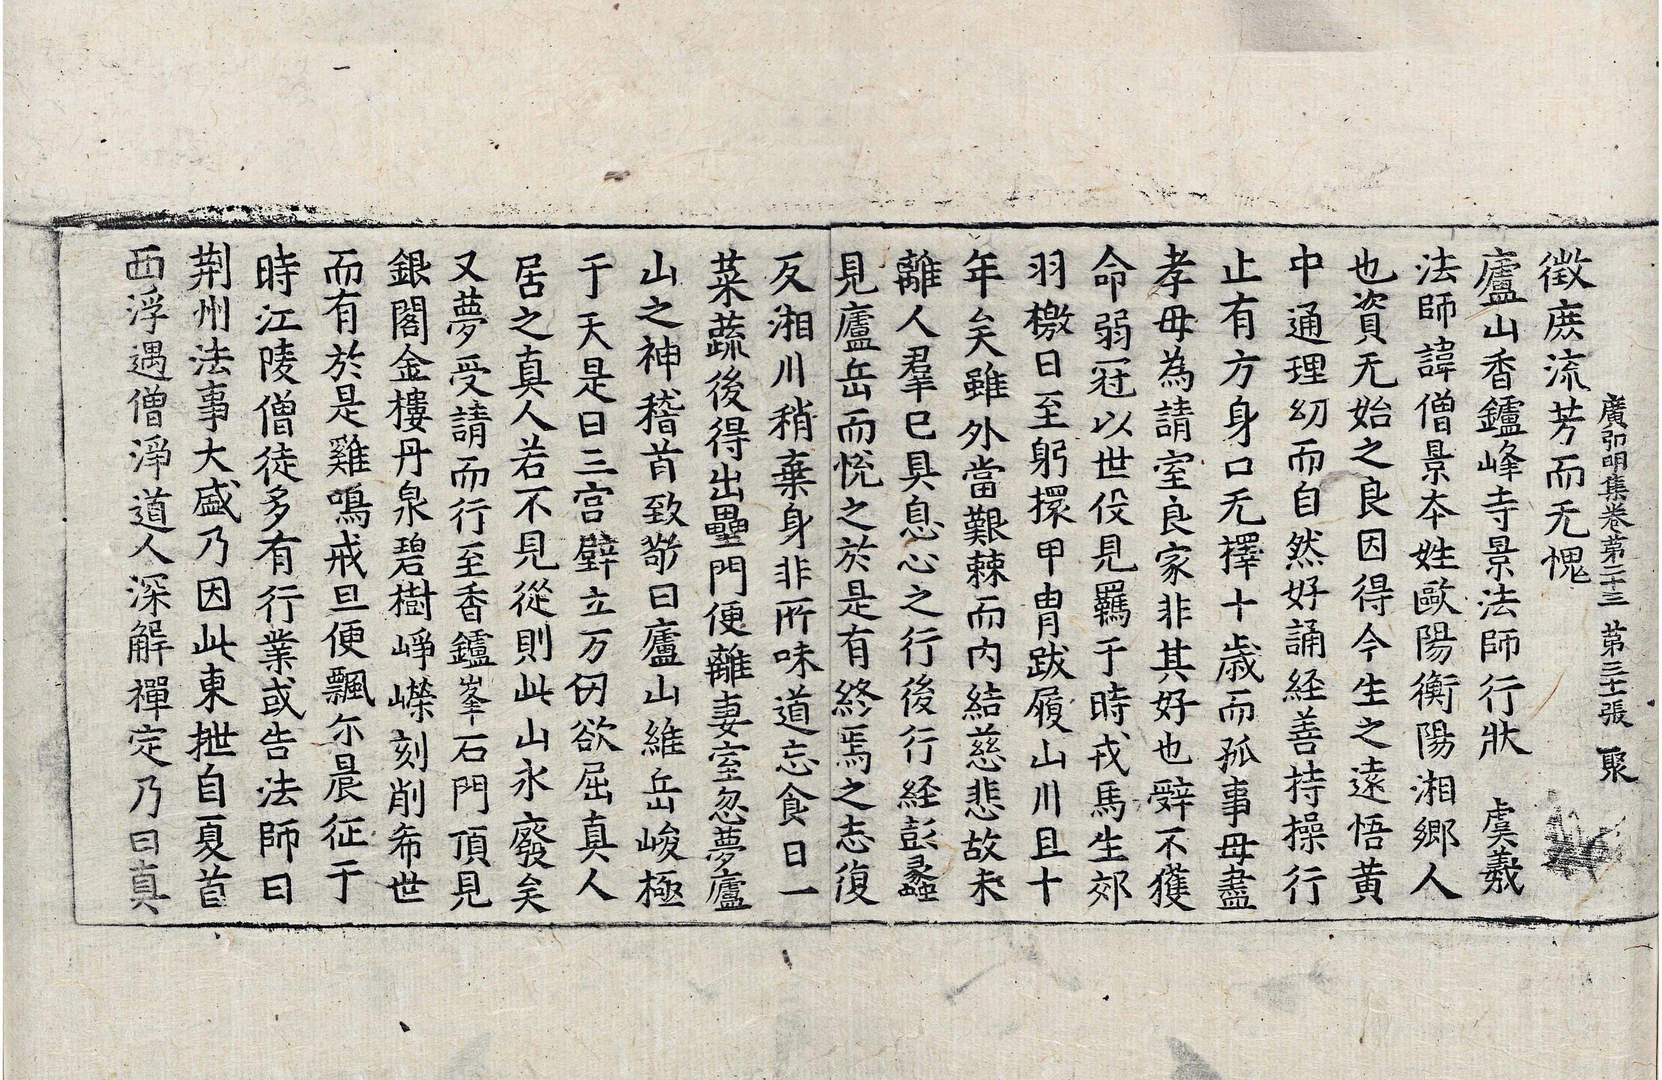 廣弘明集卷第二十三 第三十張 聚
徵庻流芳而无愧
廬山香鑪峰寺景法師行狀 虞羲
法師諱僧景夲姓歐陽衡陽湘郷人
也資无始之良因得今生之遠悟黄
中通理㓜而自然好誦経善持操行
止有方身口无擇十歳而孤事毋盡
孝毋為請室良家非其好也辤不獲
命弱冠以世役見羈于時戎馬生郊
羽檄日至躬擐甲胄跋履山川且十
年矣雖外當艱棘而内結慈悲故未
離人羣已具息心之行後行経彭蠡
見廬岳而恱之於是有終焉之志復
反湘川稍棄身非所味道忘食日一
菜蔬後得出壘門便離妻室忽夢廬
山之神稽首致敬曰廬山維岳峻極
于天是曰三宫壁立万仞欲屈真人
居之真人若不見從則此山永廢矣
又夢受請而行至香鑪峯石門頂見
銀閣金樓丹泉碧樹崢嶸刻削希世
而有於是雞鳴戒旦便飄尓晨征于
時江陵僧徒多有行業或告法師曰
荆州法事大盛乃因此東拪自夏首
西浮遇僧淨道人深解禪定乃曰真